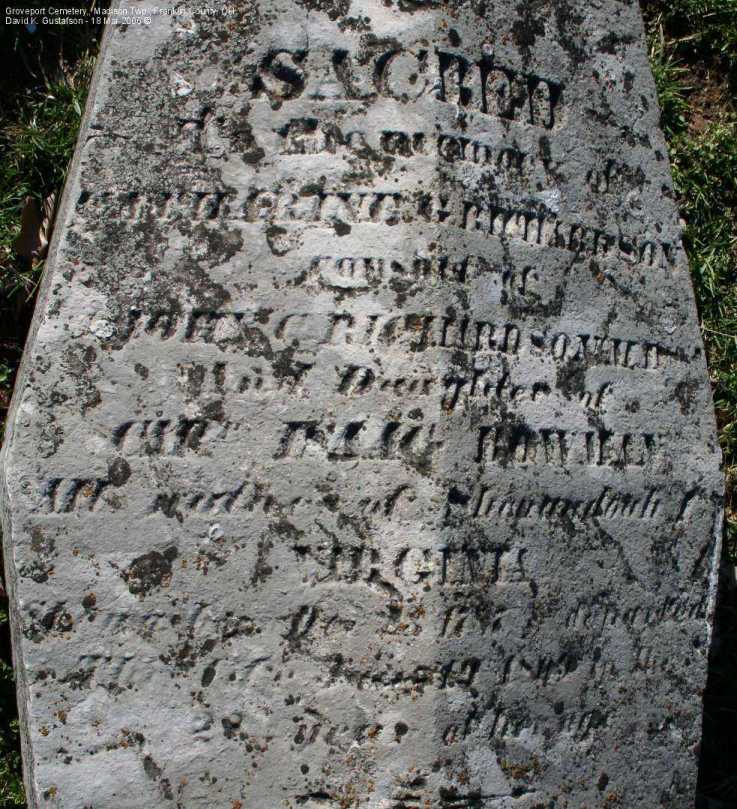 Groveport Cemetery, Madison Twp., Franklin County, OH
David K. Gustafson - 18 Mar 2006 ©
SACRED
To the memory of
G. RICHARDSON
consort of
JOHN C RICHARDSON M.D
And Daughter of
CAPT ISAAC BOWMAN
All natives of Shenandoah
VIRGINIA
departed
This life 1849 in the
year of her age